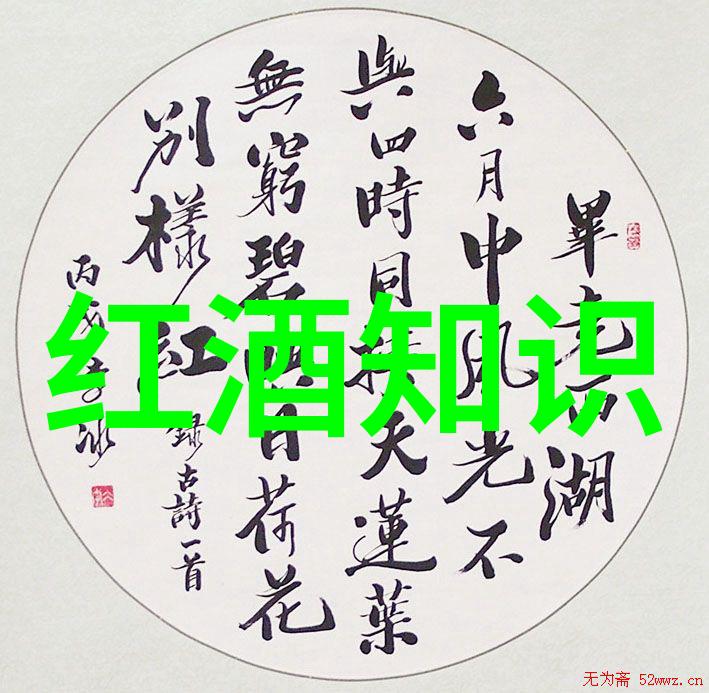 畢竟西湖
六月中風光不
與四時同接天蓮葉
無窮碧映日荷花
別樣紅
錄古詩一首
丙戌
红酒知识
无为斋 52wwz.cn